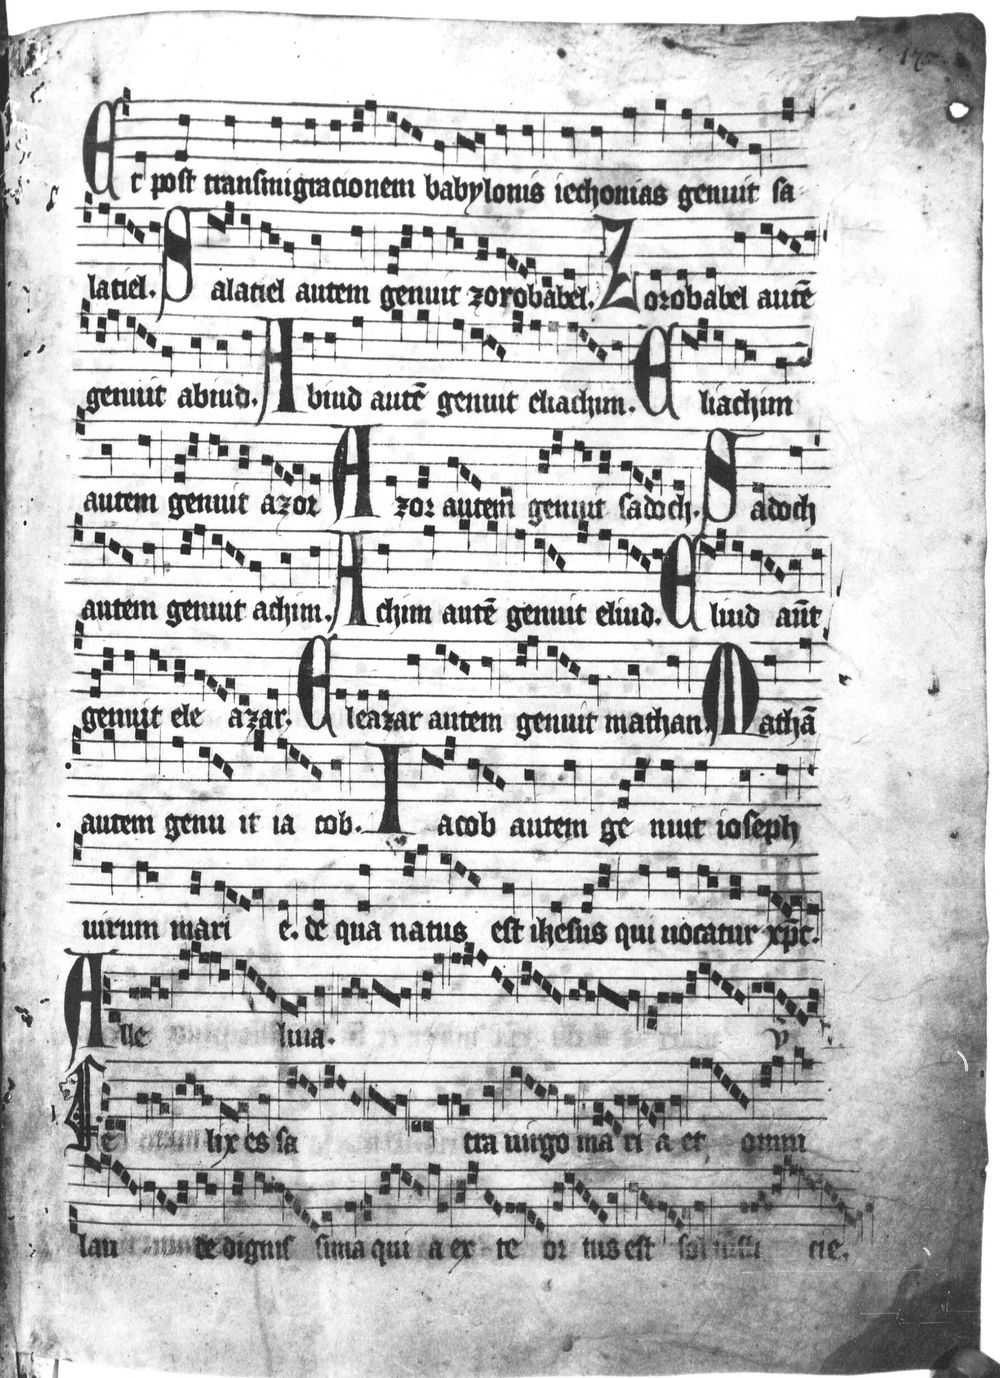 175
Et post transmigracionem babylonis iechonias genuit sa
latiel. Salatiel autem genuit zorobabel. Zorobabel autē
genuit abiud. Abiud autē genuit eliachim. Eliachim
autem genuit azor Azor autem genuit sadoch. Sadoch
autem genuit achim. Achim autē genuit eliud. Eliud aūt
genuit ele azar. Eleazar autem genuit mathan. Mathā
autem genu it ia cob. Iacob autem ge nuit ioseph
uirum mari e. de qua natus est ihesus qui uocatur xp̄c.
Alle luia. V
Felix es sa cra uirgo ma ri a et omni
lau de dignis sima qui a ex te or tus est sol iusti cie.